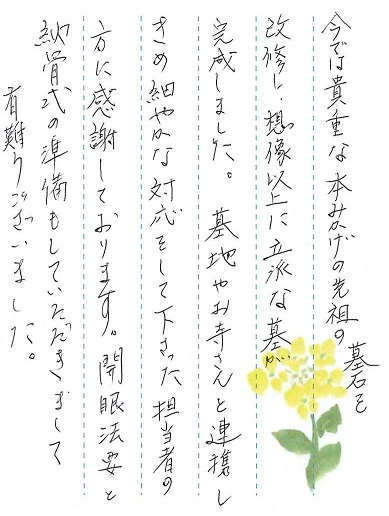 今では貴重な本みかげの先祖の墓石を
改修し、想像以上に立派な墓が
完成しました。墓地やお寺さんと連携し
きめ細やかな対応をして下さった担当者の
方に感謝しております。開眼法要と
納骨式の準備もしていただきまして
有難うございました。